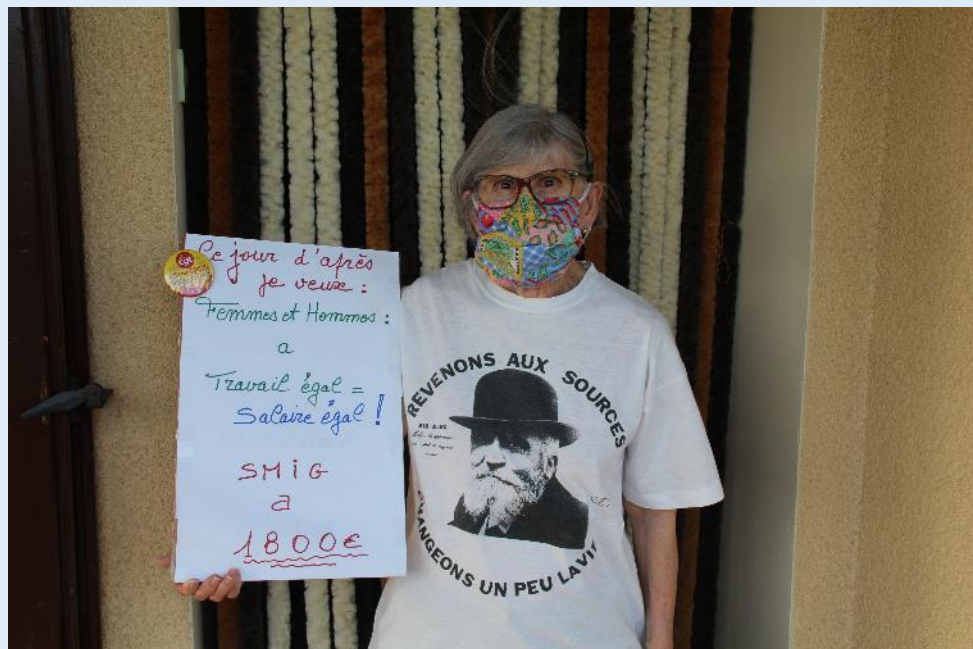 cgt
Le jour d'après
je veux :
Femmes et Hommes :
a
Travail égal =
Salaire égal !
SMiG
a
1800€
REVENONS AUX SOURCES
CHANGEONS UN PEU LA VIE